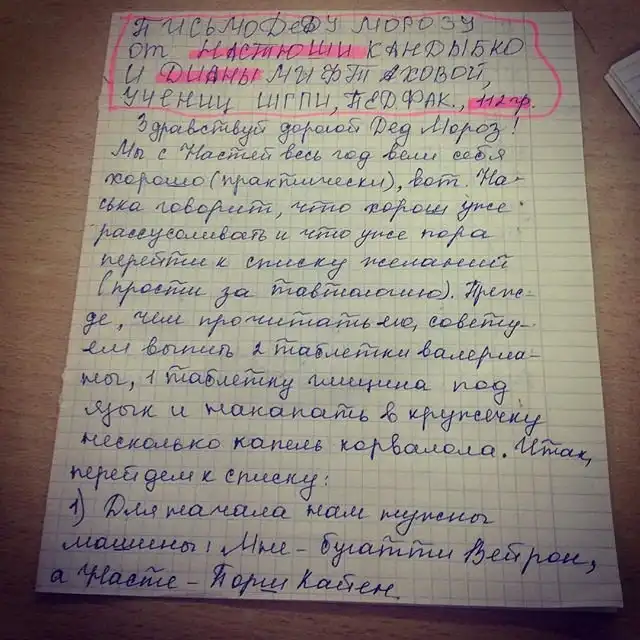 ПИСЬМО ДеДУ МОРОЗУ
ОТ НАСТЮШИ КАНДЫБКО
И ДИАНЫ МИФТАХОВОЙ,
УЧЕНИЦ ШГПИ, ПЕДФАК., 112гр.
Здравствуй дорогой Дед Мороз!
Мы с Настей весь год вели себя
хорошо (практически), вот. На-
ська говорит, что хорош уже
рассусоливать и что уже пора
перейти к списку желаний
(прости за тавтологию). Преж-
де, чем прочитать его, совету-
ем выпить 2 таблетки валериа-
ны, 1 таблетку глицина под
язык и накапать в кружечку
несколько капель корвалола. Итак,
перейдем к списку:
1) Для начала нам нужны
машины: Мне - бугатти Вейрон,
а Насте - Порш Кайен.